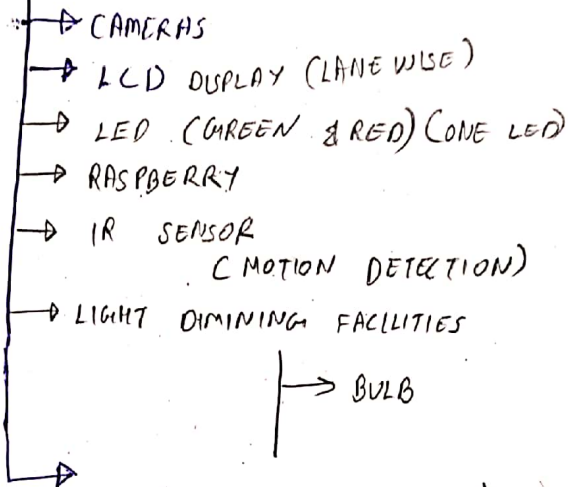 CAMERAS
LCD DISPLAY (LANE WISE)
LED (GREEN & RED) (ONE LED)
RASPBERRY
IR SENSOR
(MOTION DETECTION)
LIGHT DIMINING FACILITIES
BULB